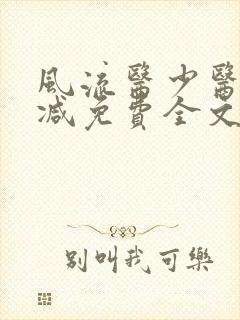 風流醫少醫
減免費全文
別叫我可樂